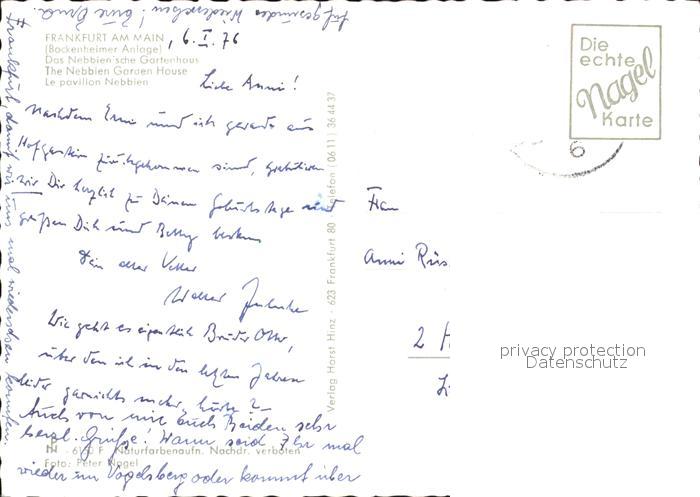 Auf gesundes Wiedersehen! Eure Erna.
FRANKFURT AM MAIN, 6. I. 76
(Bockenheimer Anlage)
Das Nebbien'sche Gartenhaus
The Nebbien Garden House
Le pavillon Nebbien
Liebe Anni!
Nachdem Erna und ich gerade aus
Hofgastein zurückgekommen sind, gratulieren
wir Dir herzlich zu Deinem Geburtstage und
grüßen Dich und Betty bestens
Dein alter Vetter
Walter
Wie geht es eigentlich Bruder Otto,
über den ich in den letzten Jahren
leider garnichts mehr hörte?
Auch von mir Euch Beiden sehr
herzl. Grüße! Wann seid Ihr mal
wieder im Vogelsberg oder kommt über
Frankfurt, damit wir uns mal wiedersehen konnten.
6110 F Naturfarbenaufn. Nachdr. verboten
Foto: Peter Nagel
Verlag Horst Hinz · 623 Frankfurt 80 Telefon (06 11) 36 44 37
Die
echte
Nagel
Karte
6
Frau
Anni Rüs
2 H
privacy protection
Datenschutz